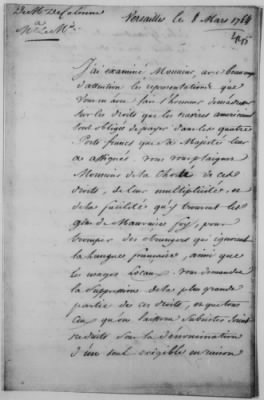 De M. De Calonne
Versailles le 8 Mars 1784
J'ai examiné Monsieur, avec beaucoup
d'attention les representations que
vous m'avez fait l'honneur
sur les droits que les navires americains
sont obligés de payer dans les quatre
Ports francs que Sa Majesté leur
a assignés. vous vous plaignez
Monsieur de la Cherté de ces
droits, de leur multiplicité, et
de la facilité qu'y trouvent les
gens de Mauvaise foy, pour
tromper des etrangers qui ignorent
la langue française, ainsi que
les usages Locaux. vous demandez
la Suppression de la plus grande
partie de ces droits, et que tous
ceux qu'on laissera Subsister soient
reduits Sous la denomination
d'un seul exigible en raison